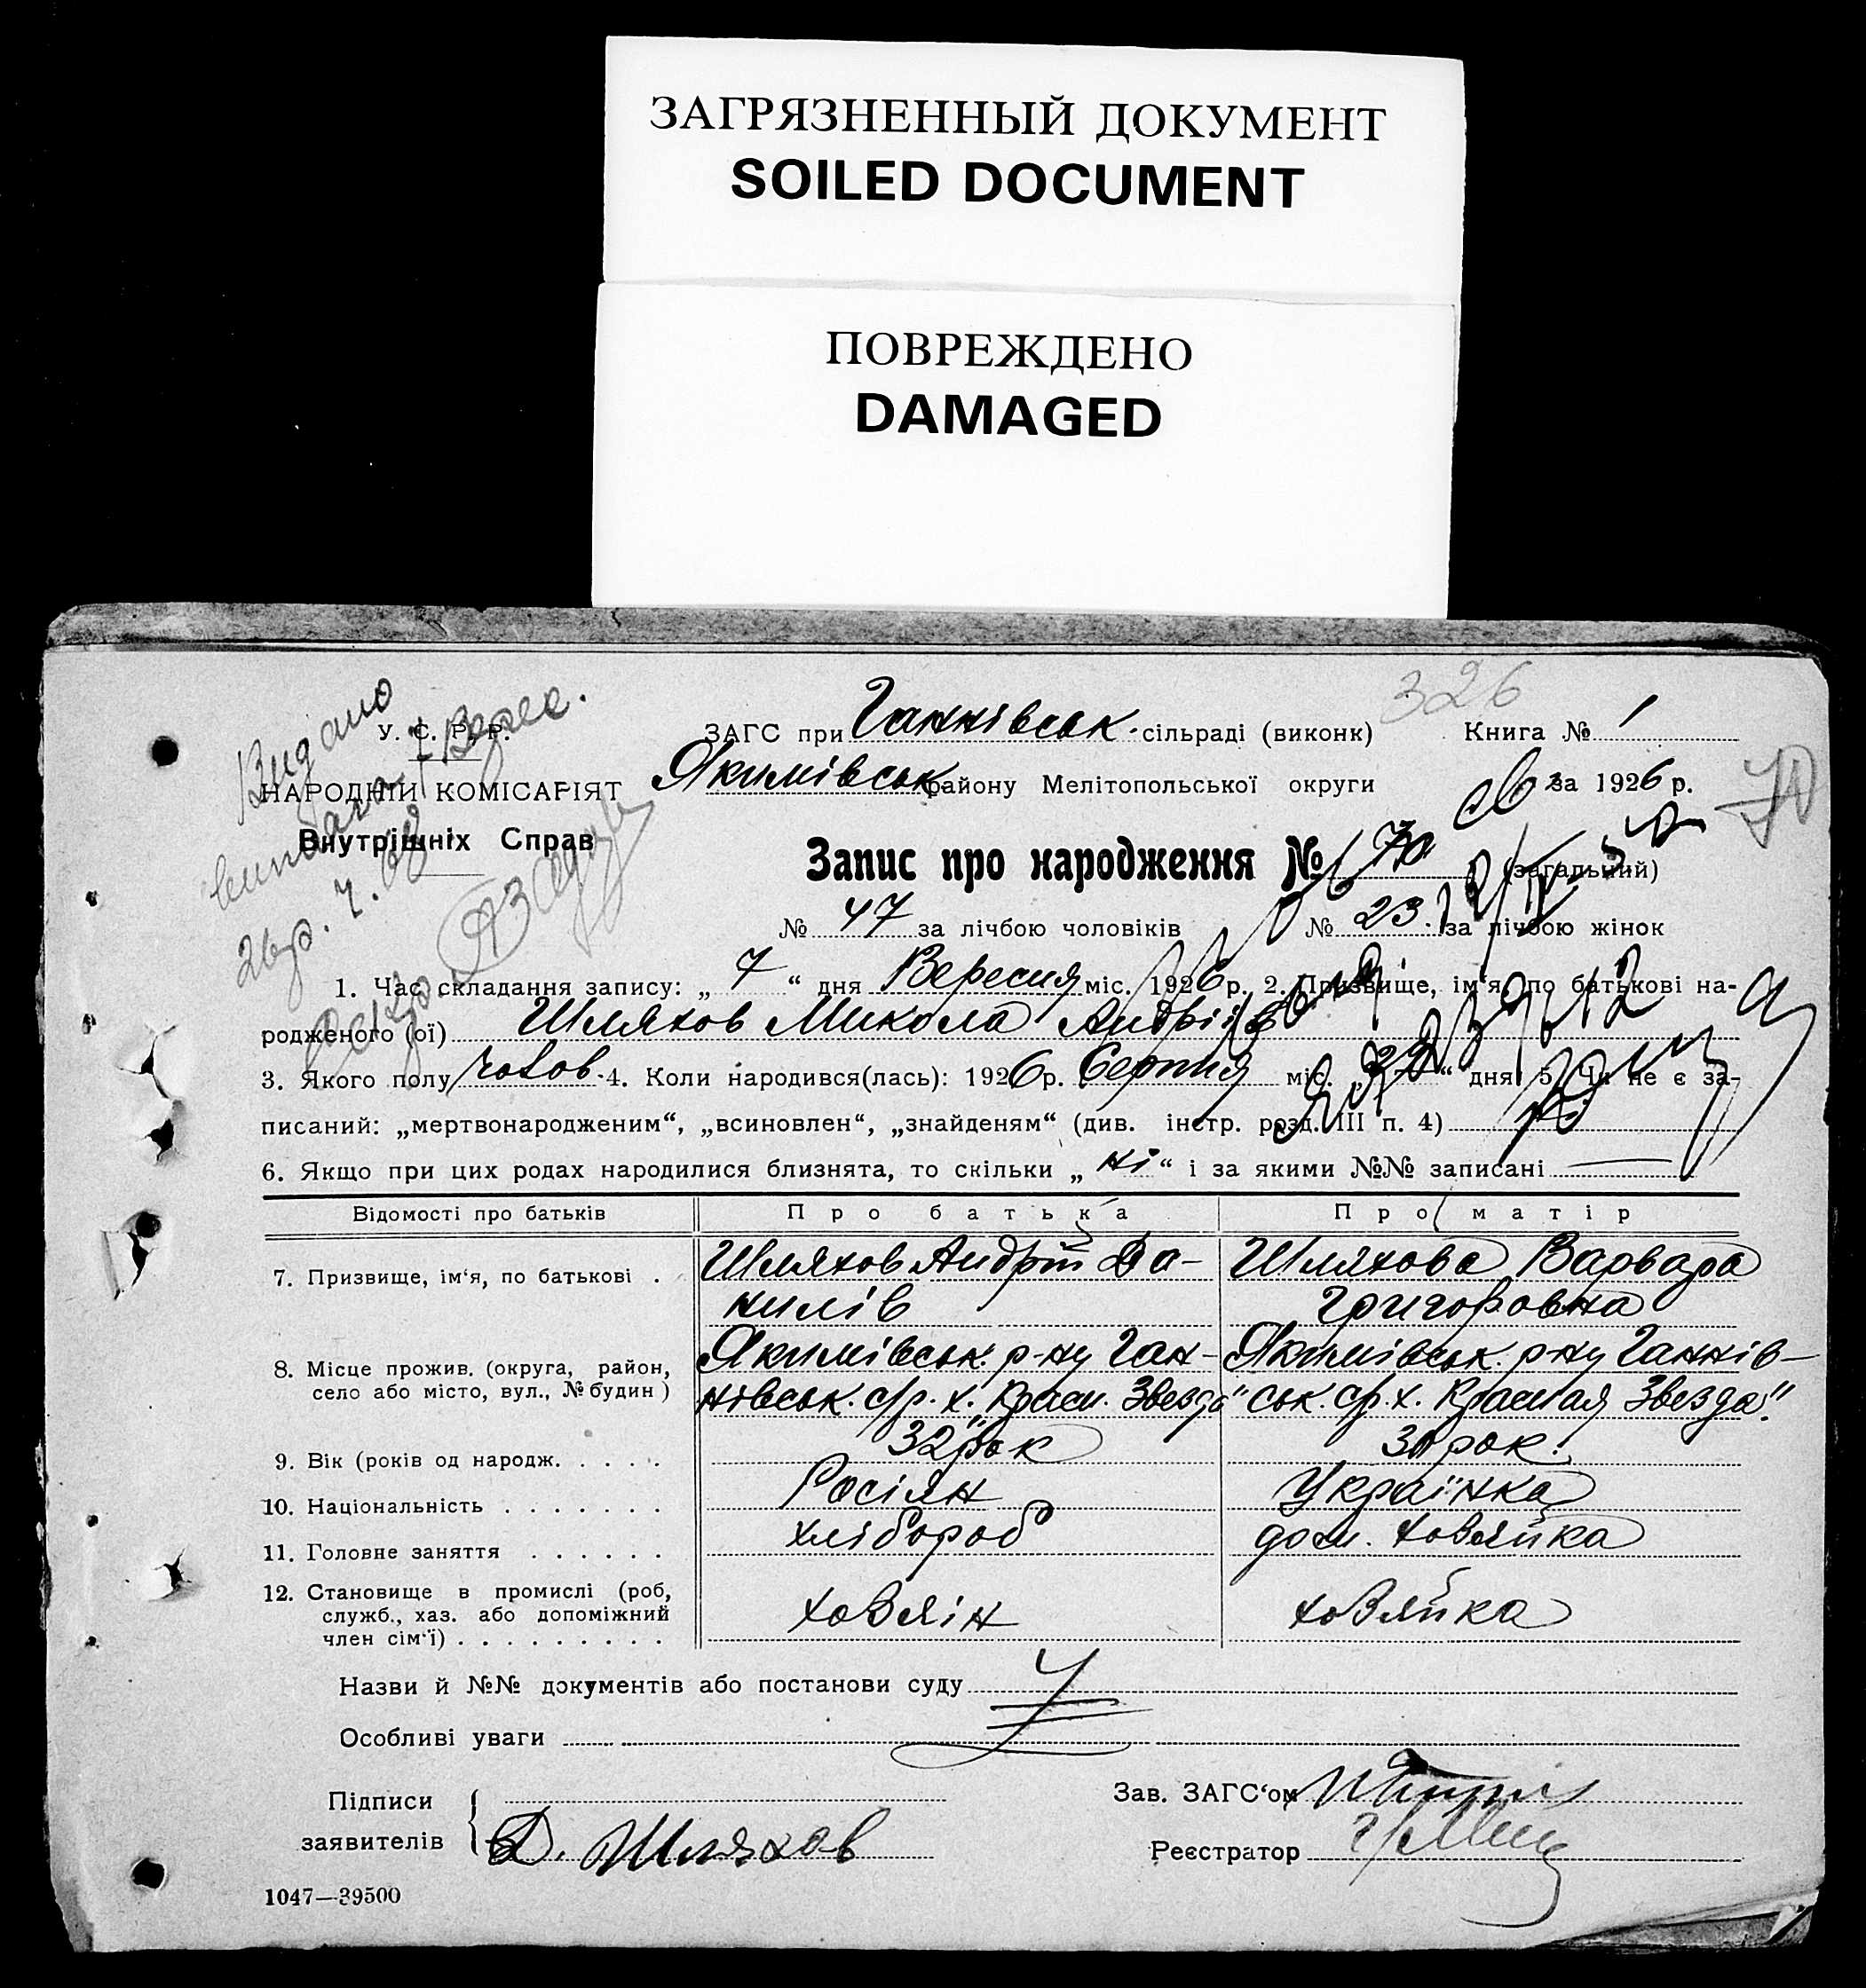 ЗАГРЯЗНЕННЫЙ ДОКУМЕНТ
SOILED DOCUMENT
ПОВРЕЖДЕНО
DAMAGED
326
Видано
У. С. Р. Р.
НАРОДНІЙ КОМІСАРІЯТ
Внутрішніх Справ
ЗАГС при Ганнівськ. сільраді (виконк) Книга № 1
Якимівськ району Мелітопольської округи за 1926 р.
70
Запис про народження № 70 (загальний)
№ 47 за лічбою чоловіків № 23 за лічбою жінок
1. Час складання запису: „ 7 “ дня Вересня міс. 1926 р. 2. Призвище, ім'я, по батькові на-
родженого (ої) Шляхов Микола Андріїв
3. Якого полу чолов. 4. Коли народився(лась): 1926 р. Серпня міс. „ “ дня 5. Чи не є за-
писаний: „мертвонародженим“, „всиновлен“, „знайденям“ (див. інстр. розд. III п. 4) ні
6. Якщо при цих родах народилися близнята, то скільки „ ні “ і за якими №№ записані —
Відомості про батьків Про батька Про матір
7. Призвище, ім'я, по батькові . Шляхов Андрій Да- Шляхова Варвара
нилів Григоровна
8. Місце прожив. (округа, район, Якимівськ. р-ну Ган- Якимівськ. р-ну Ганнів-
село або місто, вул., № будин) нівськ. с/р. х. „Красн. Звезда" ськ. с/р. х. „Красная Звезда."
9. Вік (років од народж. . . . . . 32 рок 30 рок.
10. Національність . . . . . . . Росіян Українка
11. Головне заняття . . . . . . хлібороб дом. ховяйка
12. Становище в промислі (роб,
служб., хаз. або допоміжний ховяін ховяйка
член сім'ї) . . . . . . . . .
Назви й №№ документів або постанови суду
Особливі уваги
Підписи Зав. ЗАГС'ом
заявителів Д. Шляхов Реєстратор
1047—39500